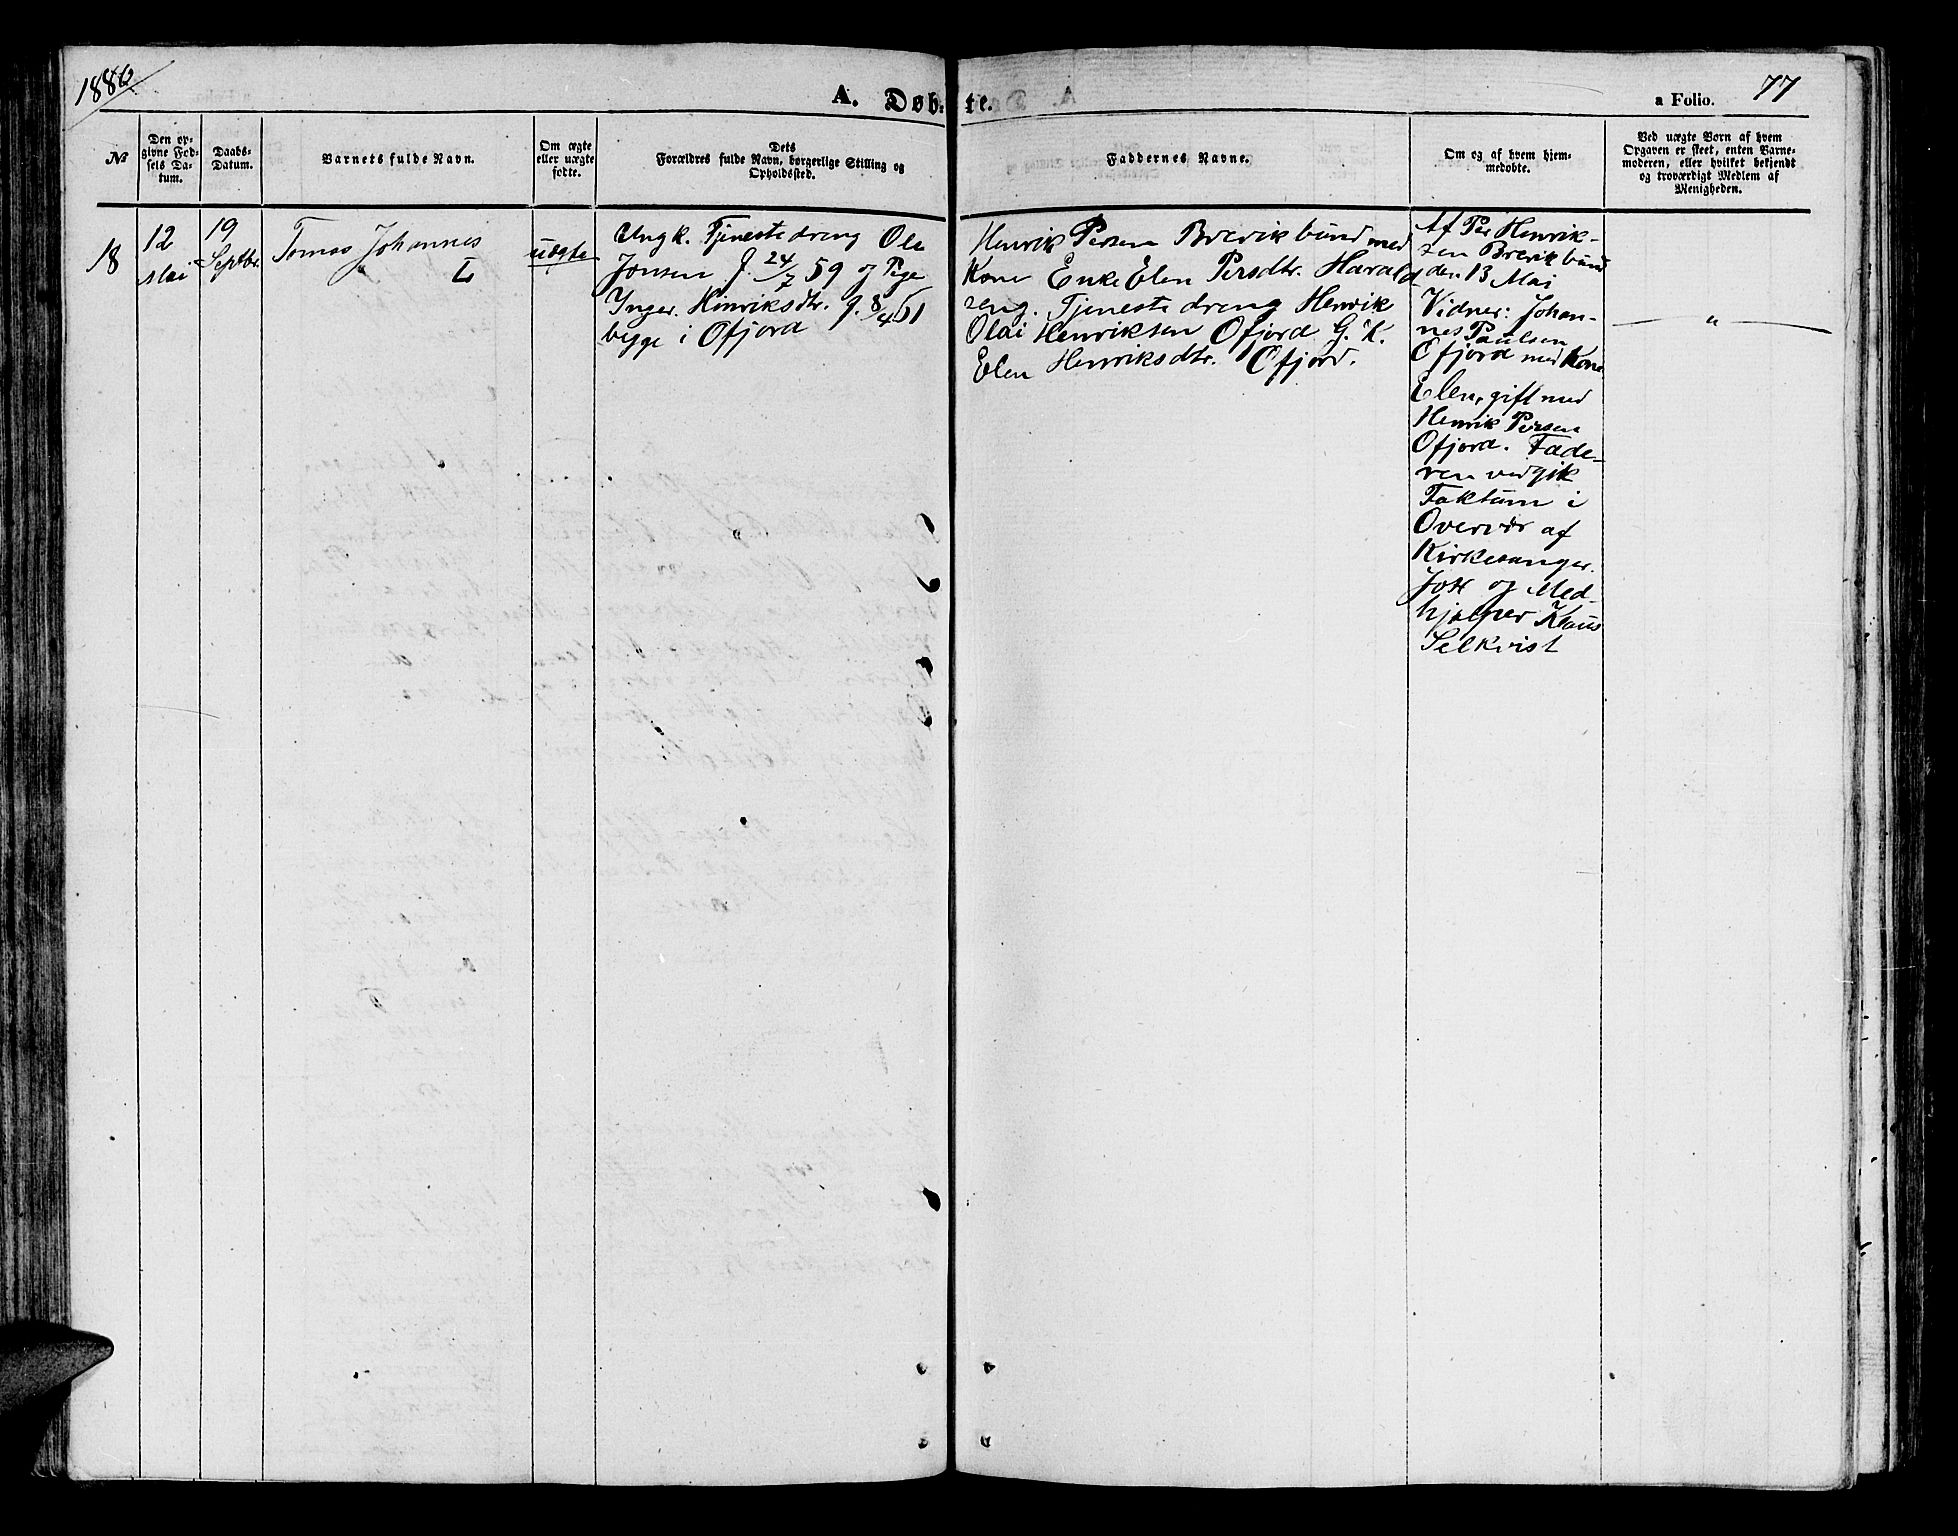 1880
A. Døb-te.
a Folio. 77
No
Den op-
givne Fød-
sels Da-
tum.
Daabs-
Datum.
Barnets fulde Navn.
Om ægte
eller uægte
fødte.
Dets
Forældres fulde Navn, borgerlige Stilling og
Opholdssted.
Faddernes Navne.
Om og af hvem hjem-
medøbte.
Ved uægte Børn af hvem
Opgaven er skeet, enten Barne-
moderen, eller hvilket bekjendt
og troværdigt Medlem af
Menigheden.
18
12
Mai
19
Septbr.
Tomas Johannes
L
uægte
Ungk. Tjenestedreng Ole
Jonsen f. 24/7 59 og Pige
Inger Hinriksdtr. f. 8/4 61
begge i Ofjord
Henrik Persen Brevikbund med
Kone Enke Elen Persdtr. Harald
seng. Tjenestedreng Henrik
Olai Henriksen Ofjord G. K.
Elen Henriksdtr. Ofjord.
Af Per Henrik-
sen Brevikbund
den 13 Mai
Vidner: Johan-
nes Paulsen
Ofjord med Kone
Elen, gift med
Henrik Persen
Ofjord. Fade-
ren vedgik
Faktum i
Overvær af
Kirkesanger
og Med-
hjælper Klaus
Selkvist
"